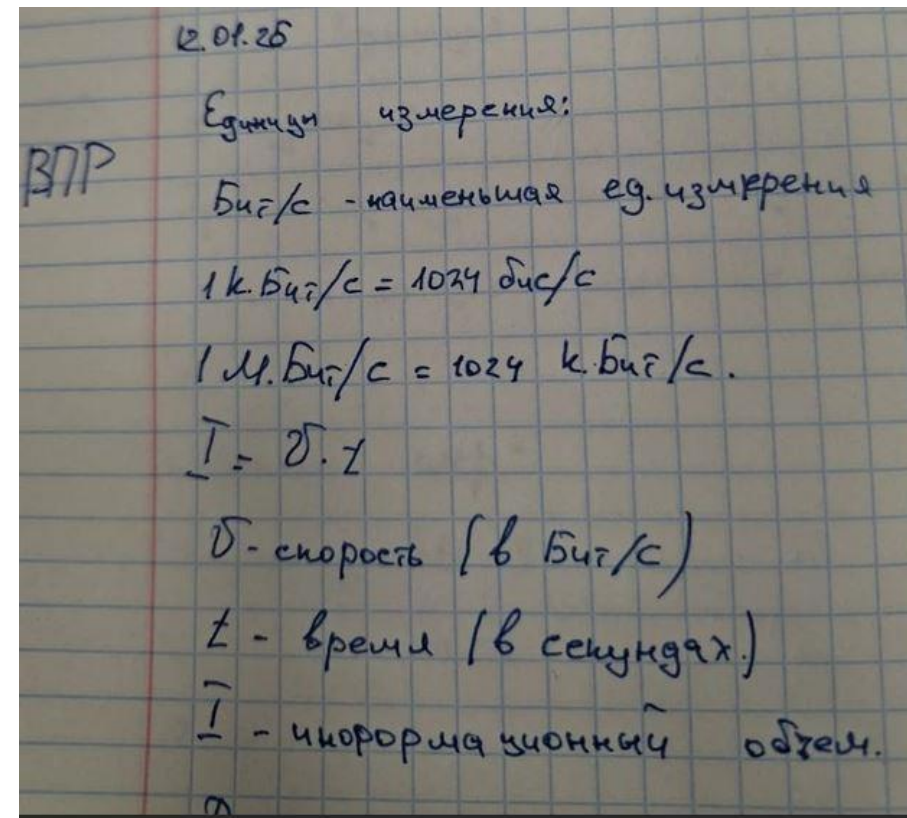 12.01.26
Единицы измерения:
ВПР
Бит/с - наименьшая ед. измерения
1 к.Бит/с = 1024 бис/с
1 М.Бит/с = 1024 к.Бит/с.
I = υ. t
υ - скорость (в Бит/с)
t - время (в секундах.)
I - инорормационный обчем.